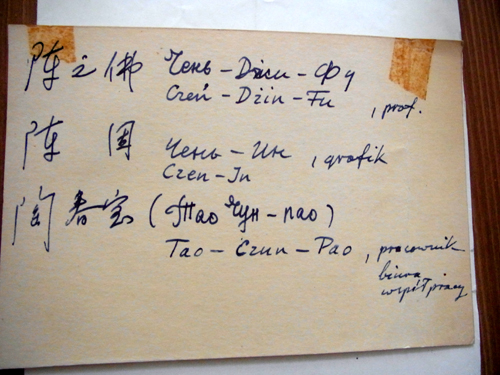 陈之佛 Чень-Dжи-Фу
Czeń-Dżin-Fu, prof.
陈 Чень-Ин, grafik
Czen-In
陶春宝 (Тао Чун-пао)
Tao-Czun-Pao, pracownik
biura
współpracy